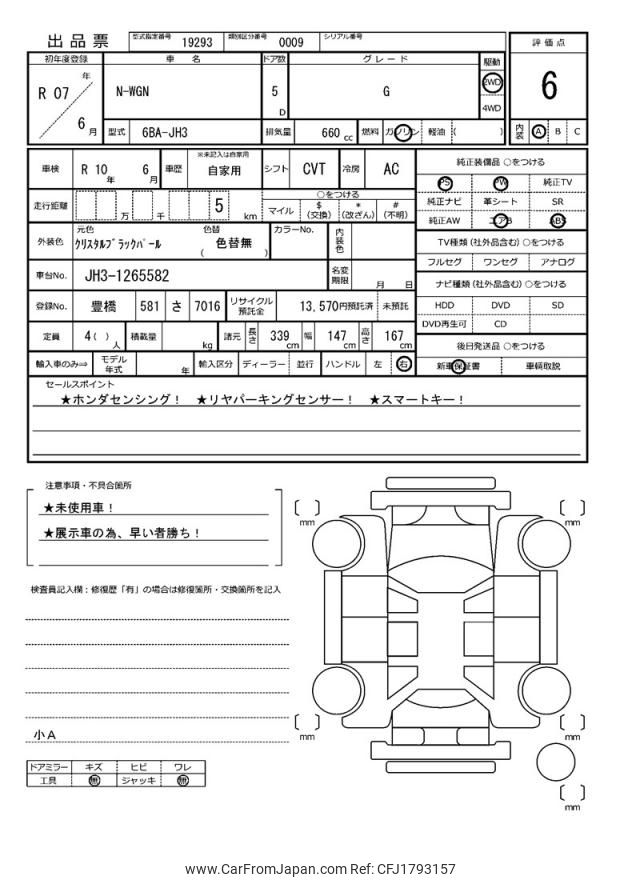 出品票 型式指定番号 19293 類別区分番号 0009 シリアル番号
初年度登録 車名 ドア数 グレード 駆動 評価点
R 07 年 6 月 N-WGN 5 D G 2WD 4WD 6
型式 6BA-JH3 排気量 660 cc 燃料 ガソリン 軽油 ( ) 内装 A B C
車検 R 10 年 6 月 車歴 ※未記入は自家用 自家用 シフト CVT 冷房 AC 純正装備品 ○をつける
PS PW 純正TV
走行距離 万 千 5 km ○をつける
マイル $(交換) *(改ざん) #(不明) 純正ナビ 革シート SR
純正AW エアB ABS
外装色 元色 クリスタルブラックパール 色替 ( 色替無 ) カラーNo. 内装色 TV種類 (社外品含む) ○をつける
フルセグ ワンセグ アナログ
車台No. JH3-1265582 名変期限 月 日 ナビ種類 (社外品含む) ○をつける
登録No. 豊橋 581 さ 7016 リサイクル預託金 13,570円預託済 未預託 HDD DVD SD
DVD再生可 CD
定員 4 ( ) 人 積載量 kg 諸元 長さ 339 cm 幅 147 cm 高さ 167 cm 後日発送品 ○をつける
輸入車のみ⇒ モデル年式 年 輸入区分 ディーラー 並行 ハンドル 左 右 新車保証書 車輌取説
セールスポイント
★ホンダセンシング！ ★リヤパーキングセンサー！ ★スマートキー！
注意事項・不具合箇所
★未使用車！
★展示車の為、早い者勝ち！
検査員記入欄：修復歴「有」の場合は修復箇所・交換箇所を記入
小A
ドアミラー キズ ヒビ ワレ
工具 無 ジャッキ 無
mm mm
mm mm
mm
www.CarFromJapan.com Ref: CFJ1793157